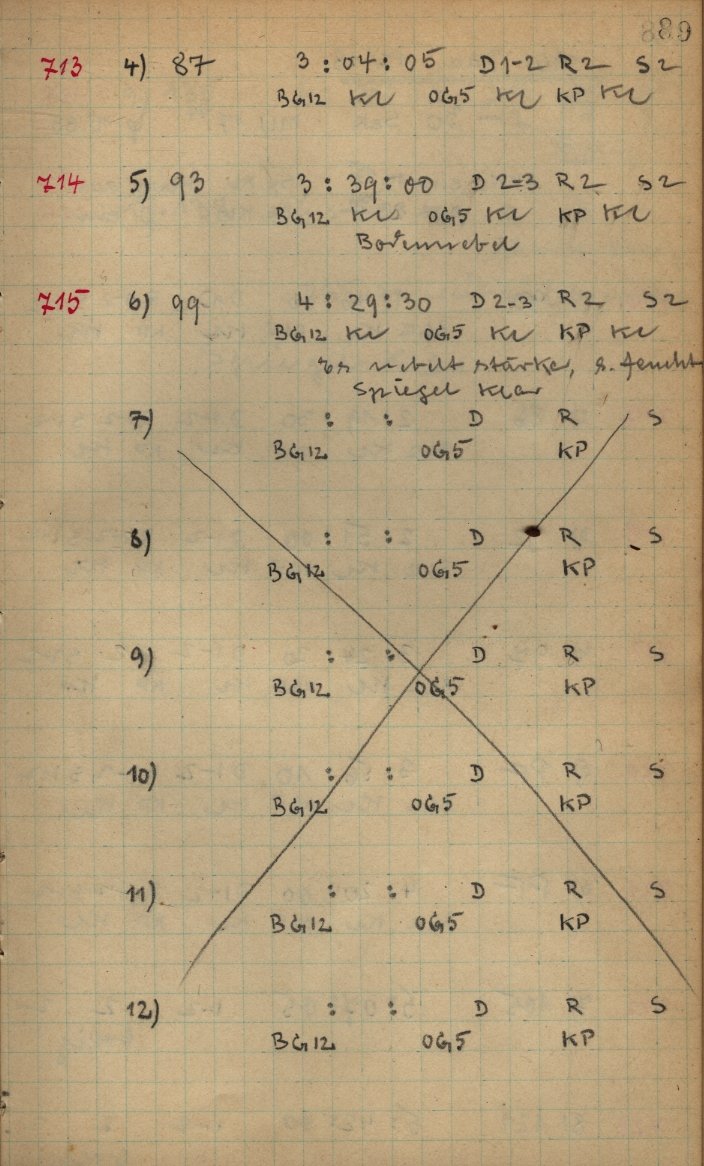 889
713 4) 87 3 : 04 : 05 D1-2 R2 S2
BG12 Kl OG5 Kl KP Kl
714 5) 93 3 : 39 : 00 D2-3 R2 S2
BG12 Kl OG5 Kl KP Kl
Bodennebel
715 6) 99 4 : 29 : 30 D2-3 R2 S2
BG12 Kl OG5 Kl KP Kl
Es nebelt stärker, s. feucht
Spiegel klar
7) : : D R S
BG12 OG5 KP
8) : : D R S
BG12 OG5 KP
9) : : D R S
BG12 OG5 KP
10) : : D R S
BG12 OG5 KP
11) : : D R S
BG12 OG5 KP
12) : : D R S
BG12 OG5 KP